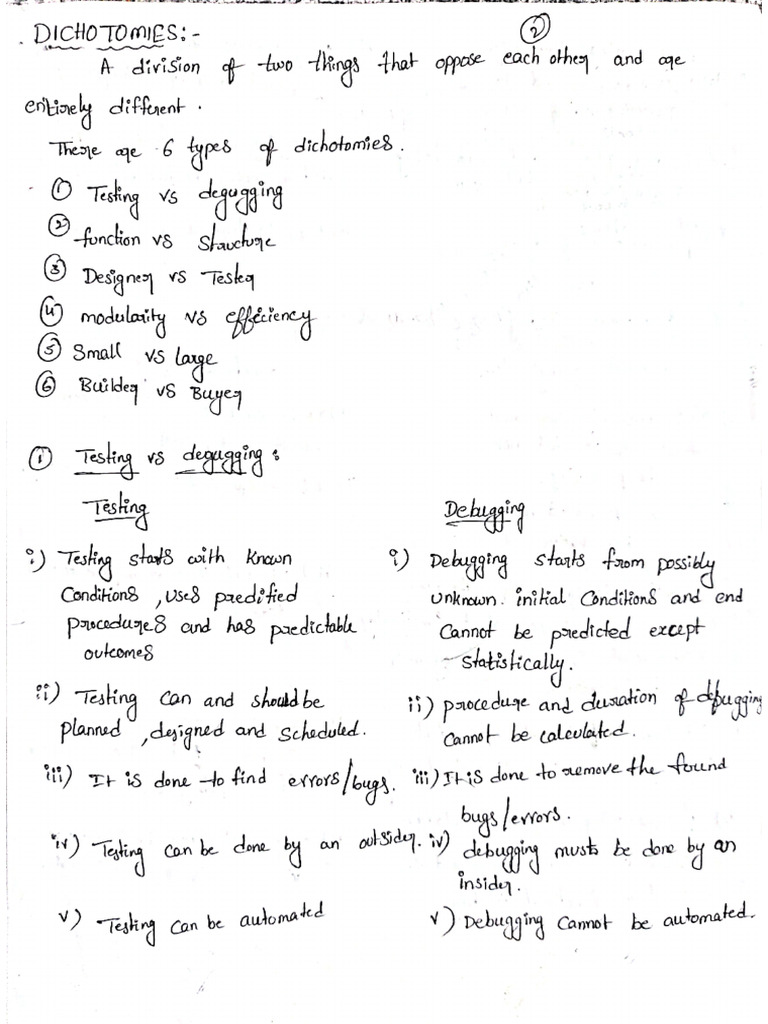 DICHOTOMIES:- 2
A division of two things that oppose each other and are
entirely different.
There are 6 types of dichotomies.
① Testing vs degugging
② function vs Structure
③ Designer vs Tester
④ modularity vs efficiency
⑤ Small vs large
⑥ Builder vs Buyer
① Testing vs degugging :
Testing
i) Testing starts with Known
Conditions, uses predified
procedures and has predictable
outcomes
ii) Testing can and should be
planned, designed and Scheduled.
iii) It is done to find errors/bugs.
iv) Testing can be done by an outsider.
v) Testing can be automated
Debugging
i) Debugging starts from possibly
unknown initial Conditions and end
Cannot be predicted except
statistically.
ii) procedure and duration of debugging
Cannot be calculated.
iii) It is done to remove the found
bugs/errors.
iv) debugging musts be done by an
insider.
v) Debugging Cannot be automated.